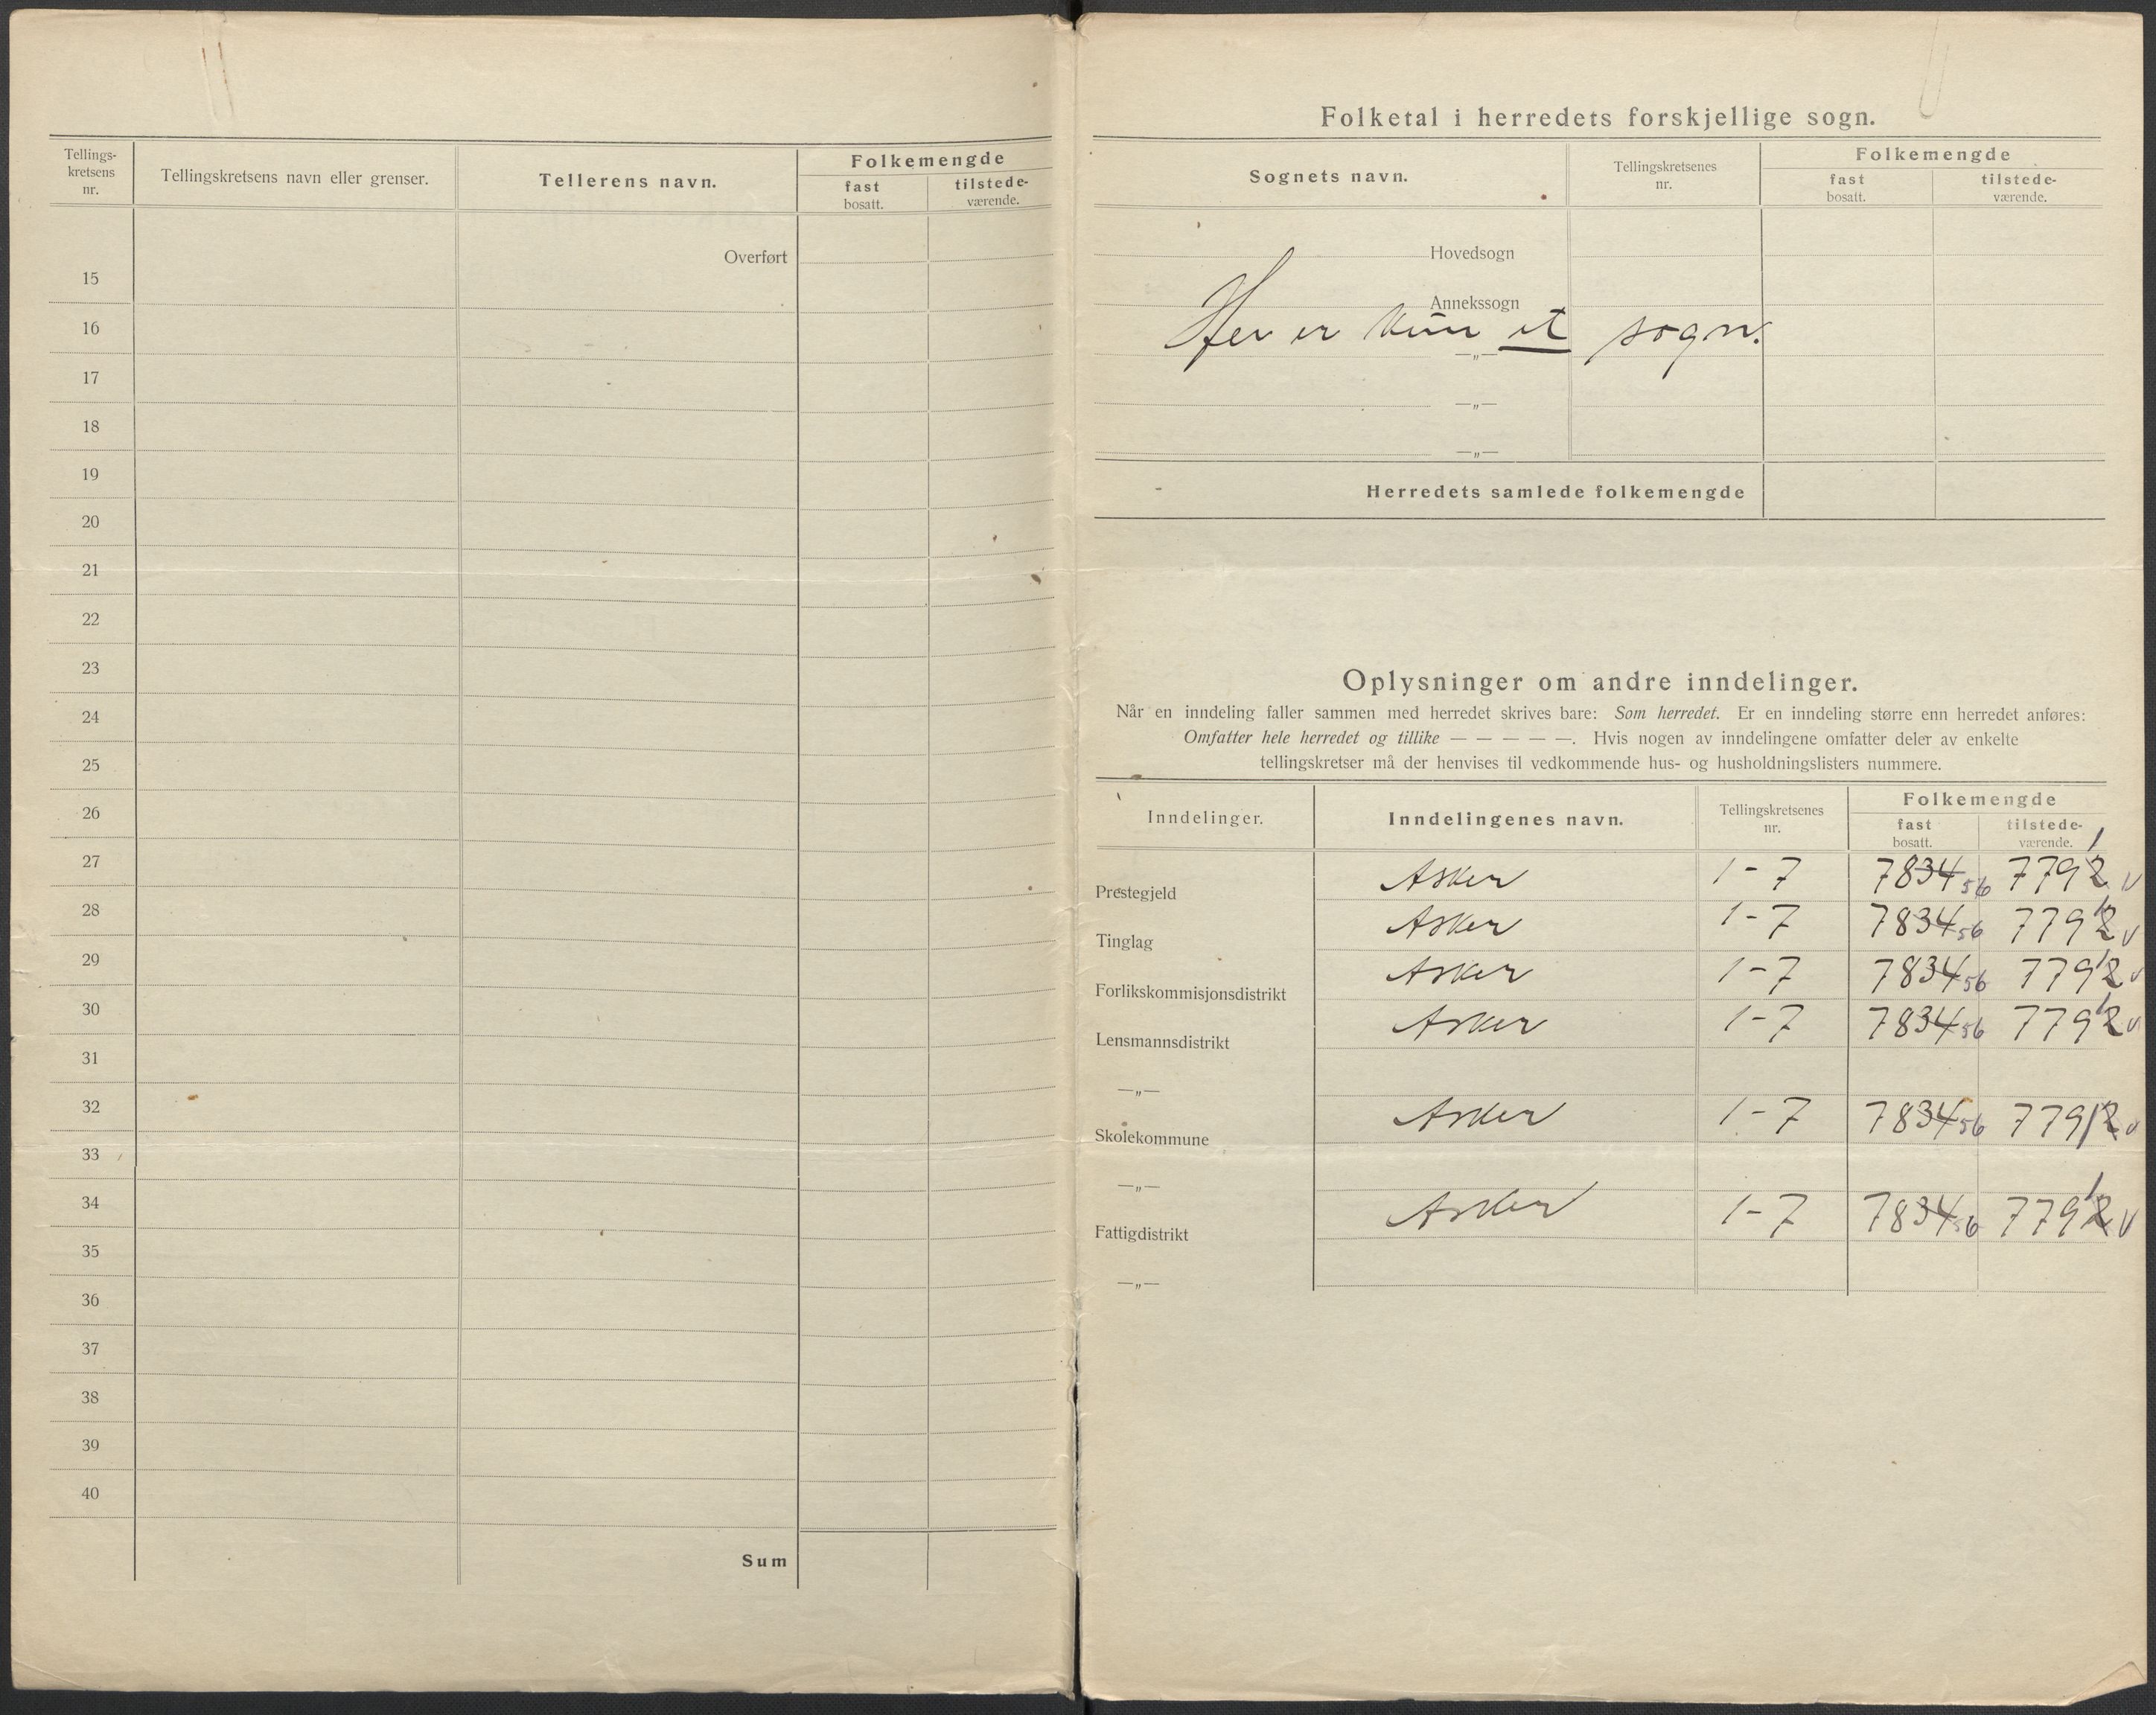 Tellings-
kretsens
nr.
Tellingskretsens navn eller grenser.
Tellerens navn.
Folkemengde
fast
bosatt.
tilstede-
værende.
Overført
15
16
17
18
19
20
21
22
23
24
25
26
27
28
29
30
31
32
33
34
35
36
37
38
39
40
Sum
Folketal i herredets forskjellige sogn.
Sognets navn.
Tellingskretsenes
nr.
Folkemengde
fast
bosatt.
tilstede-
værende.
Hovedsogn
Annekssogn
Her er kun et sogn.
—„—
—„—
—„—
Herredets samlede folkemengde
Oplysninger om andre inndelinger.
Når en inndeling faller sammen med herredet skrives bare: Som herredet. Er en inndeling større enn herredet anføres:
Omfatter hele herredet og tillike — — — — —. Hvis nogen av inndelingene omfatter deler av enkelte
tellingskretser må der henvises til vedkommende hus- og husholdningslisters nummere.
Inndelinger.
Inndelingenes navn.
Tellingskretsenes
nr.
Folkemengde
fast
bosatt.
tilstede-
værende.
Prestegjeld Asker 1-7 7834 56 7792 1 v
Tinglag Asker 1-7 7834 56 7792 1 v
Forlikskommisjonsdistrikt Asker 1-7 7834 56 7792 1 v
Lensmannsdistrikt Asker 1-7 7834 56 7792 1 v
—„—
Skolekommune Asker 1-7 7834 56 7792 1 v
—„—
Fattigdistrikt Asker 1-7 7834 56 7792 1 v
—„—